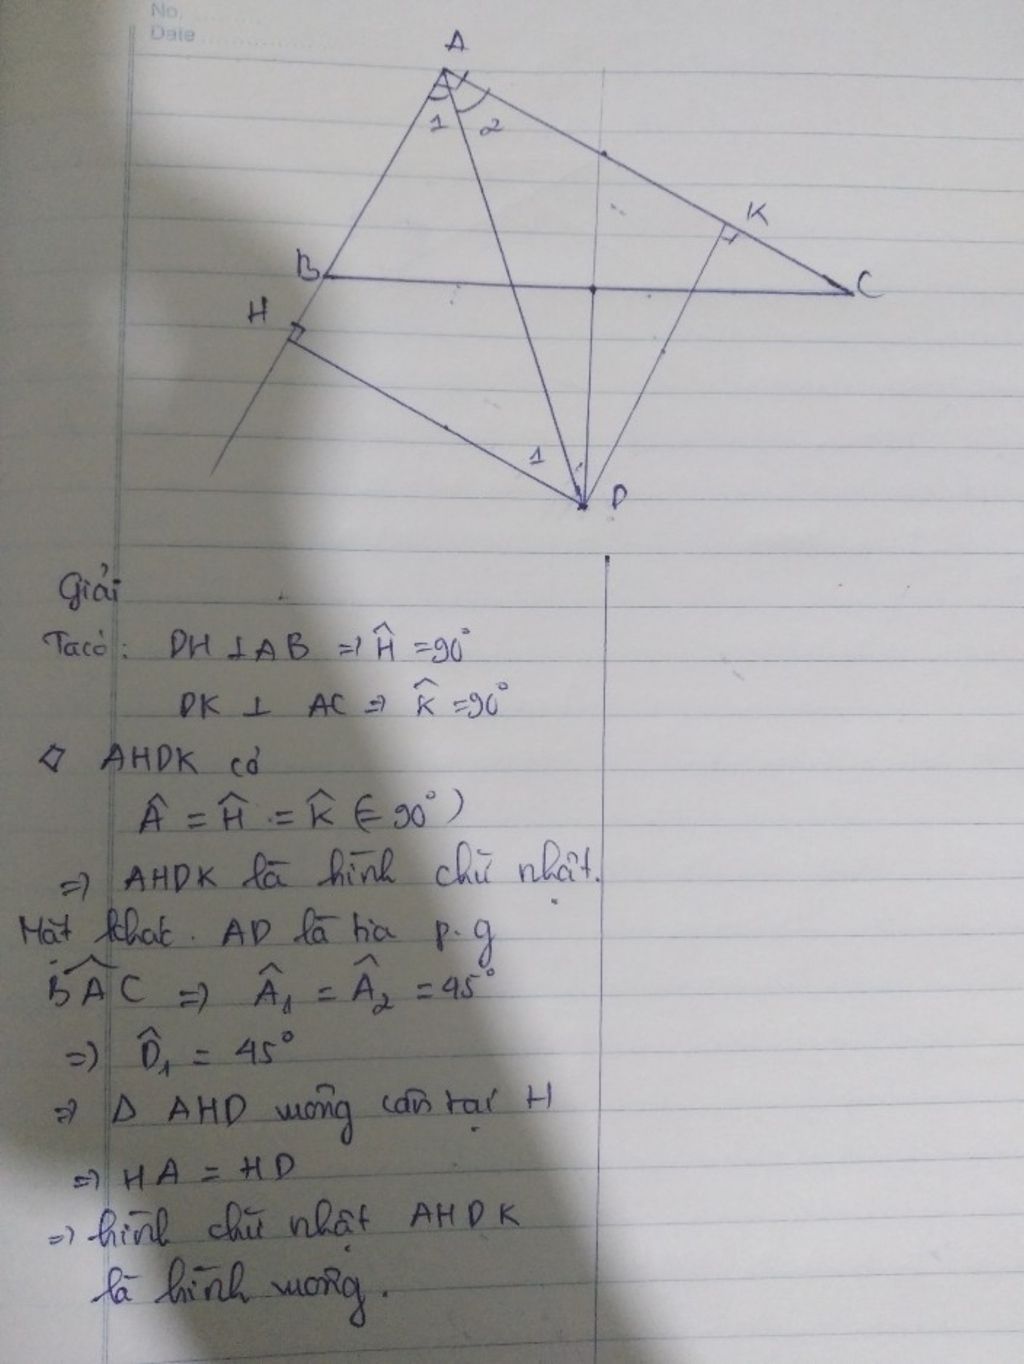 No.
Date
A
1 2
K
B
C
H
1
D
Giải
Ta có: DH ⊥ AB => Ĥ = 90°
DK ⊥ AC => K̂ = 90°
◊ AHDK có
Â = Ĥ = K̂ (= 90°)
=> AHDK là hình chữ nhật.
Mặt khác. AD là tia p.g
BÂC => Â₁ = Â₂ = 45°
=> D̂₁ = 45°
=> Δ AHD vuông cân tại H
=> HA = HD
=> hình chữ nhật AHDK
là hình vuông.